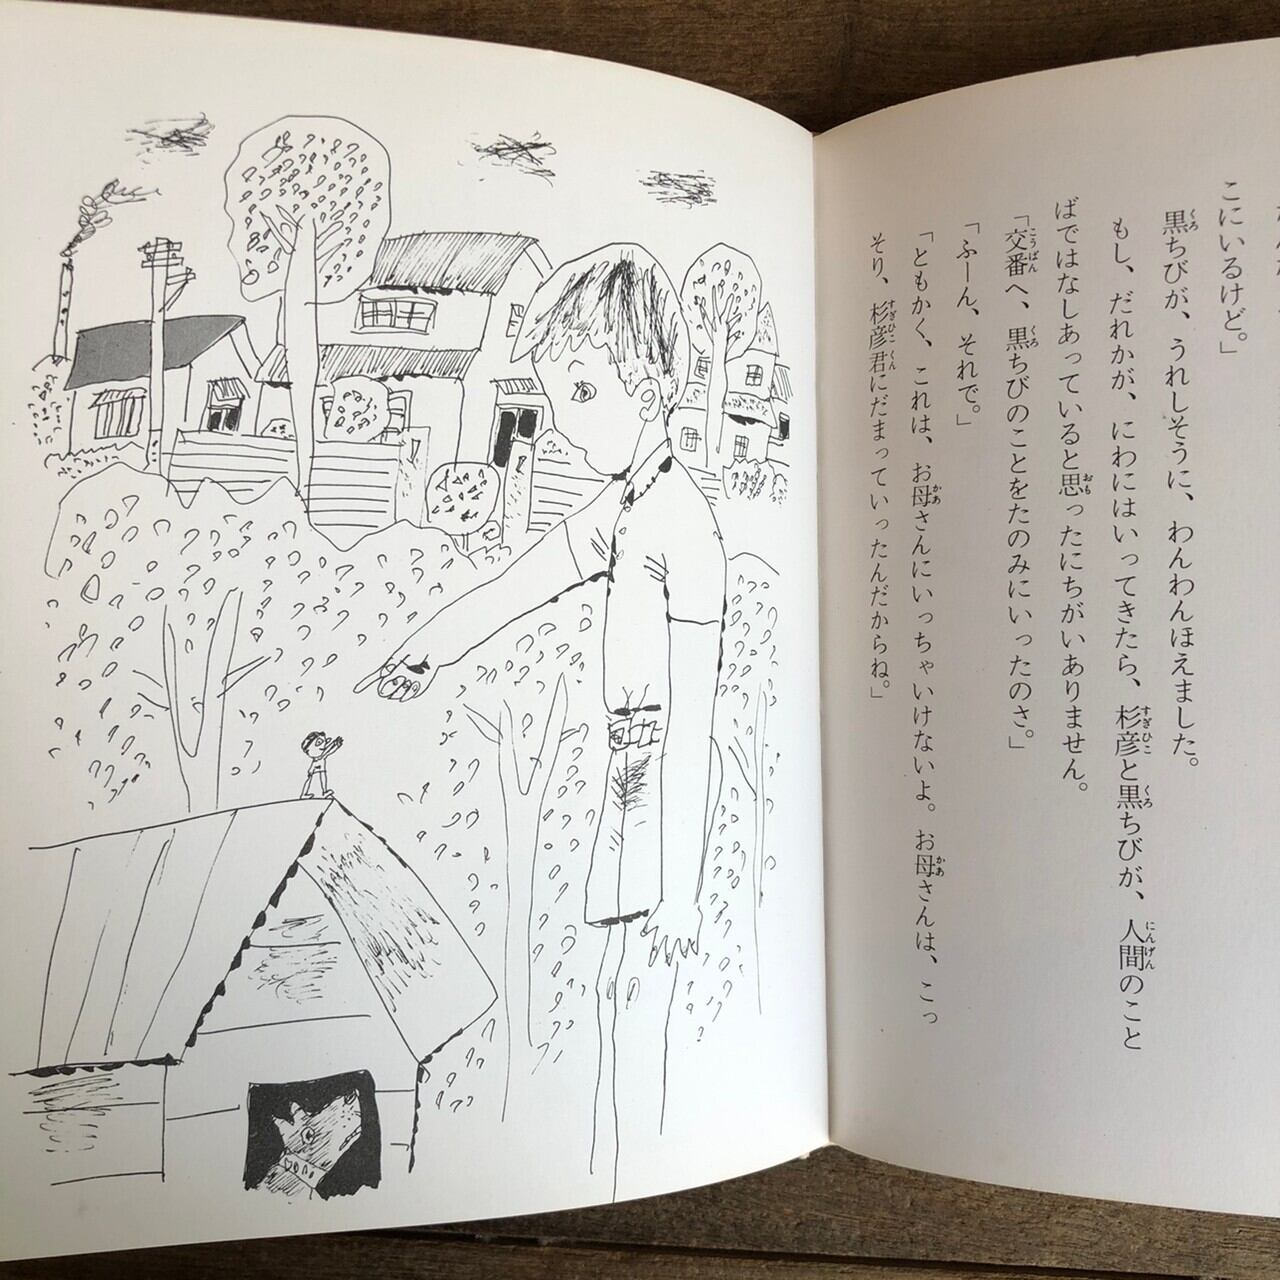 こにいるけど。」
黒ちびが、うれしそうに、わんわんほえました。
もし、だれかが、にわにはいってきたら、杉彦と黒ちびが、人間のこと
ばではなしあっていると思ったにちがいありません。
「交番へ、黒ちびのことをたのみにいったのさ。」
「ふーん、それで。」
「ともかく、これは、お母さんにいっちゃいけないよ。お母さんは、こっ
そり、杉彦君にだまっていったんだからね。」